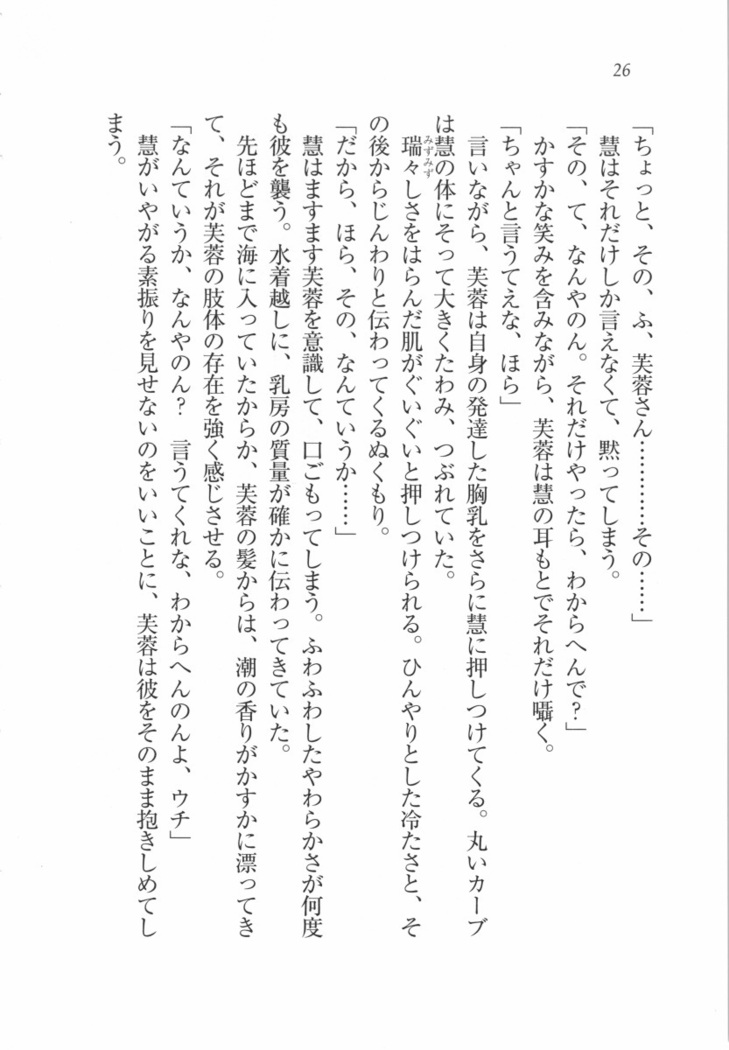 26
「ちょっと、その、ふ、芙蓉さん…………その……」
慧はそれだけしか言えなくて、黙ってしまう。
「その、て、なんやのん。それだけやったら、わからへんで？」
かすかな笑みを含みながら、芙蓉は慧の耳もとでそれだけ囁く。
「ちゃんと言うてえな、ほら」
言いながら、芙蓉は自身の発達した胸乳をさらに慧に押しつけてくる。丸いカーブ
は慧の体にそって大きくたわみ、つぶれていた。
瑞々しさをはらんだ肌がぐいぐいと押しつけられる。ひんやりとした冷たさと、そ
みずみず
の後からじんわりと伝わってくるぬくもり。
「だから、ほら、その、なんていうか……」
慧はますます芙蓉を意識して、口ごもってしまう。ふわふわしたやわらかさが何度
も彼を襲う。水着越しに、乳房の質量が確かに伝わってきていた。
先ほどまで海に入っていたからか、芙蓉の髪からは、潮の香りがかすかに漂ってき
て、それが芙蓉の肢体の存在を強く感じさせる。
「なんていうか、なんやのん？　言うてくれな、わからへんのんよ、ウチ」
慧がいやがる素振りを見せないのをいいことに、芙蓉は彼をそのまま抱きしめてし
まう。